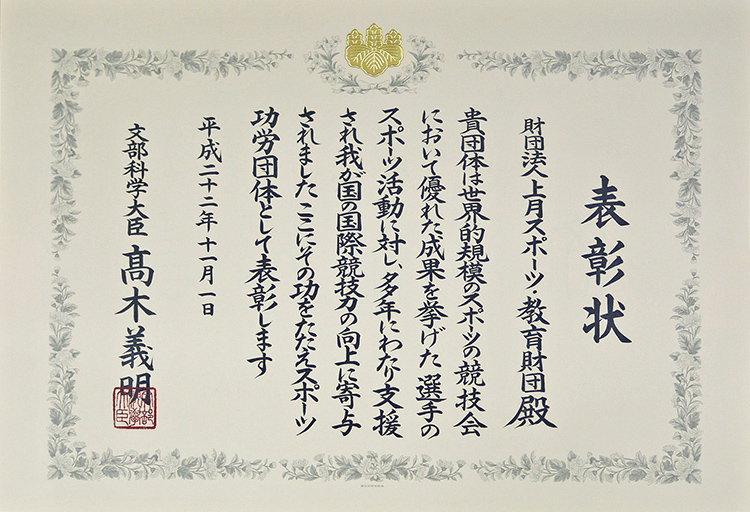 表彰状
財団法人上月スポーツ・教育財団殿
貴団体は世界的規模のスポーツの競技会
において優れた成果を挙げた選手の
スポーツ活動に対し、多年にわたり支援
され我が国の国際競技力の向上に寄与
されました ここにその功をたたえスポーツ
功労団体として表彰します
平成二十二年十一月一日
文部科学大臣 髙木義明